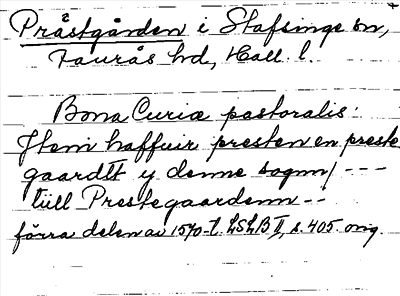 Prästgården i Stafsinge sn,
Faurås hd, Hall. l.
Bona Curiæ pastoralis:
Jtem haffuir presten en preste
gaardtt y denne sognn/ ---
tiill Prestegaardenn --
förra delen av 1570-t. LSLB II, s. 405. orig.